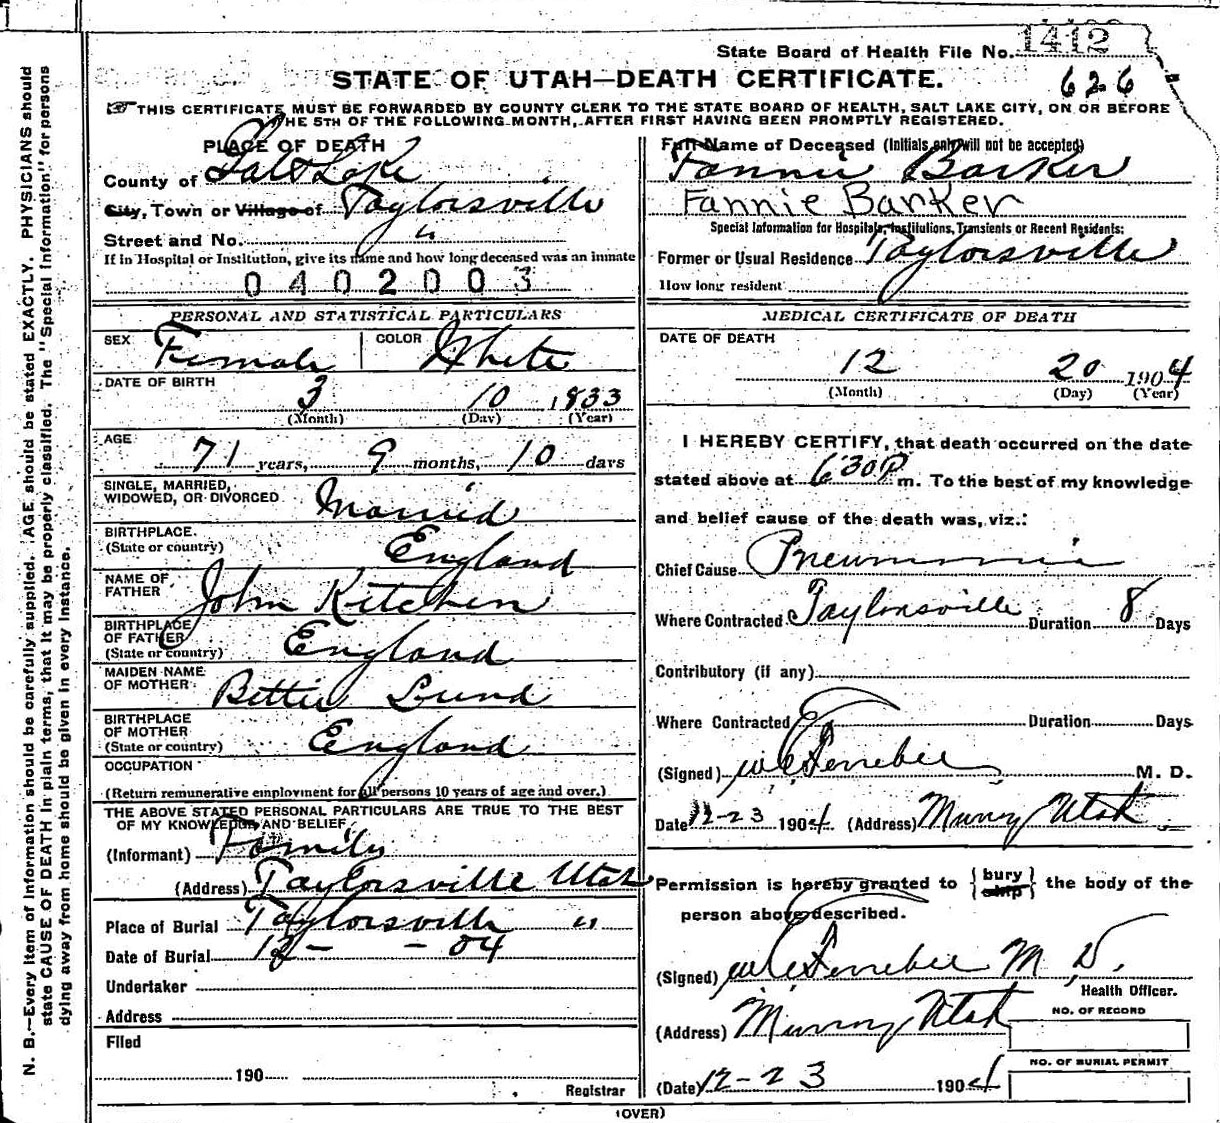 State Board of Health File No. 1412
626
STATE OF UTAH—DEATH CERTIFICATE.
THIS CERTIFICATE MUST BE FORWARDED BY COUNTY CLERK TO THE STATE BOARD OF HEALTH, SALT LAKE CITY, ON OR BEFORE
THE 5TH OF THE FOLLOWING MONTH, AFTER FIRST HAVING BEEN PROMPTLY REGISTERED.
PLACE OF DEATH
County of Salt Lake
City, Town or Village of Taylorsville
Street and No. "
If in Hospital or Institution, give its name and how long deceased was an inmate
0 4 0 2 0 0 3
PERSONAL AND STATISTICAL PARTICULARS
SEX Female COLOR White
DATE OF BIRTH
3 10 1833
(Month) (Day) (Year)
AGE
71 years, 9 months, 10 days
SINGLE, MARRIED,
WIDOWED, OR DIVORCED Married
BIRTHPLACE.
(State or country) England
NAME OF
FATHER John Kitchen
BIRTHPLACE
OF FATHER
(State or country) England
MAIDEN NAME
OF MOTHER Bettie Lund
BIRTHPLACE
OF MOTHER
(State or country) England
OCCUPATION
(Return remunerative employment for all persons 10 years of age and over.)
THE ABOVE STATED PERSONAL PARTICULARS ARE TRUE TO THE BEST
OF MY KNOWLEDGE AND BELIEF
(Informant) Family
(Address) Taylorsville Utah
Place of Burial Taylorsville "
Date of Burial 12 - - 04
Undertaker
Address
Filed
190
Registrar
Full Name of Deceased (Initials only will not be accepted)
Fannie Barker
Fannie Barker
Special Information for Hospitals, Institutions, Transients or Recent Residents:
Former or Usual Residence Taylorsville
How long resident
MEDICAL CERTIFICATE OF DEATH
DATE OF DEATH
12 20 1904
(Month) (Day) (Year)
I HEREBY CERTIFY, that death occurred on the date
stated above at 630 P m. To the best of my knowledge
and belief cause of the death was, viz.:
Chief Cause Pneumonia
Where Contracted Taylorsville Duration 8 Days
Contributory (if any)
Where Contracted Duration Days
(Signed) W C Ferrebee M. D.
Date 12-23 1904. (Address) Murray Utah
Permission is hereby granted to { bury ship } the body of the
person above described.
(Signed) W C Ferrebee M D.
Health Officer.
(Address) Murray Utah
NO. OF RECORD
NO. OF BURIAL PERMIT
(Date) 12-23 1904
(OVER)
N. B.—Every item of information should be carefully supplied. AGE should be stated EXACTLY. PHYSICIANS should
state CAUSE OF DEATH in plain terms, that it may be properly classified. The "Special Information" for persons
dying away from home should be given in every instance.